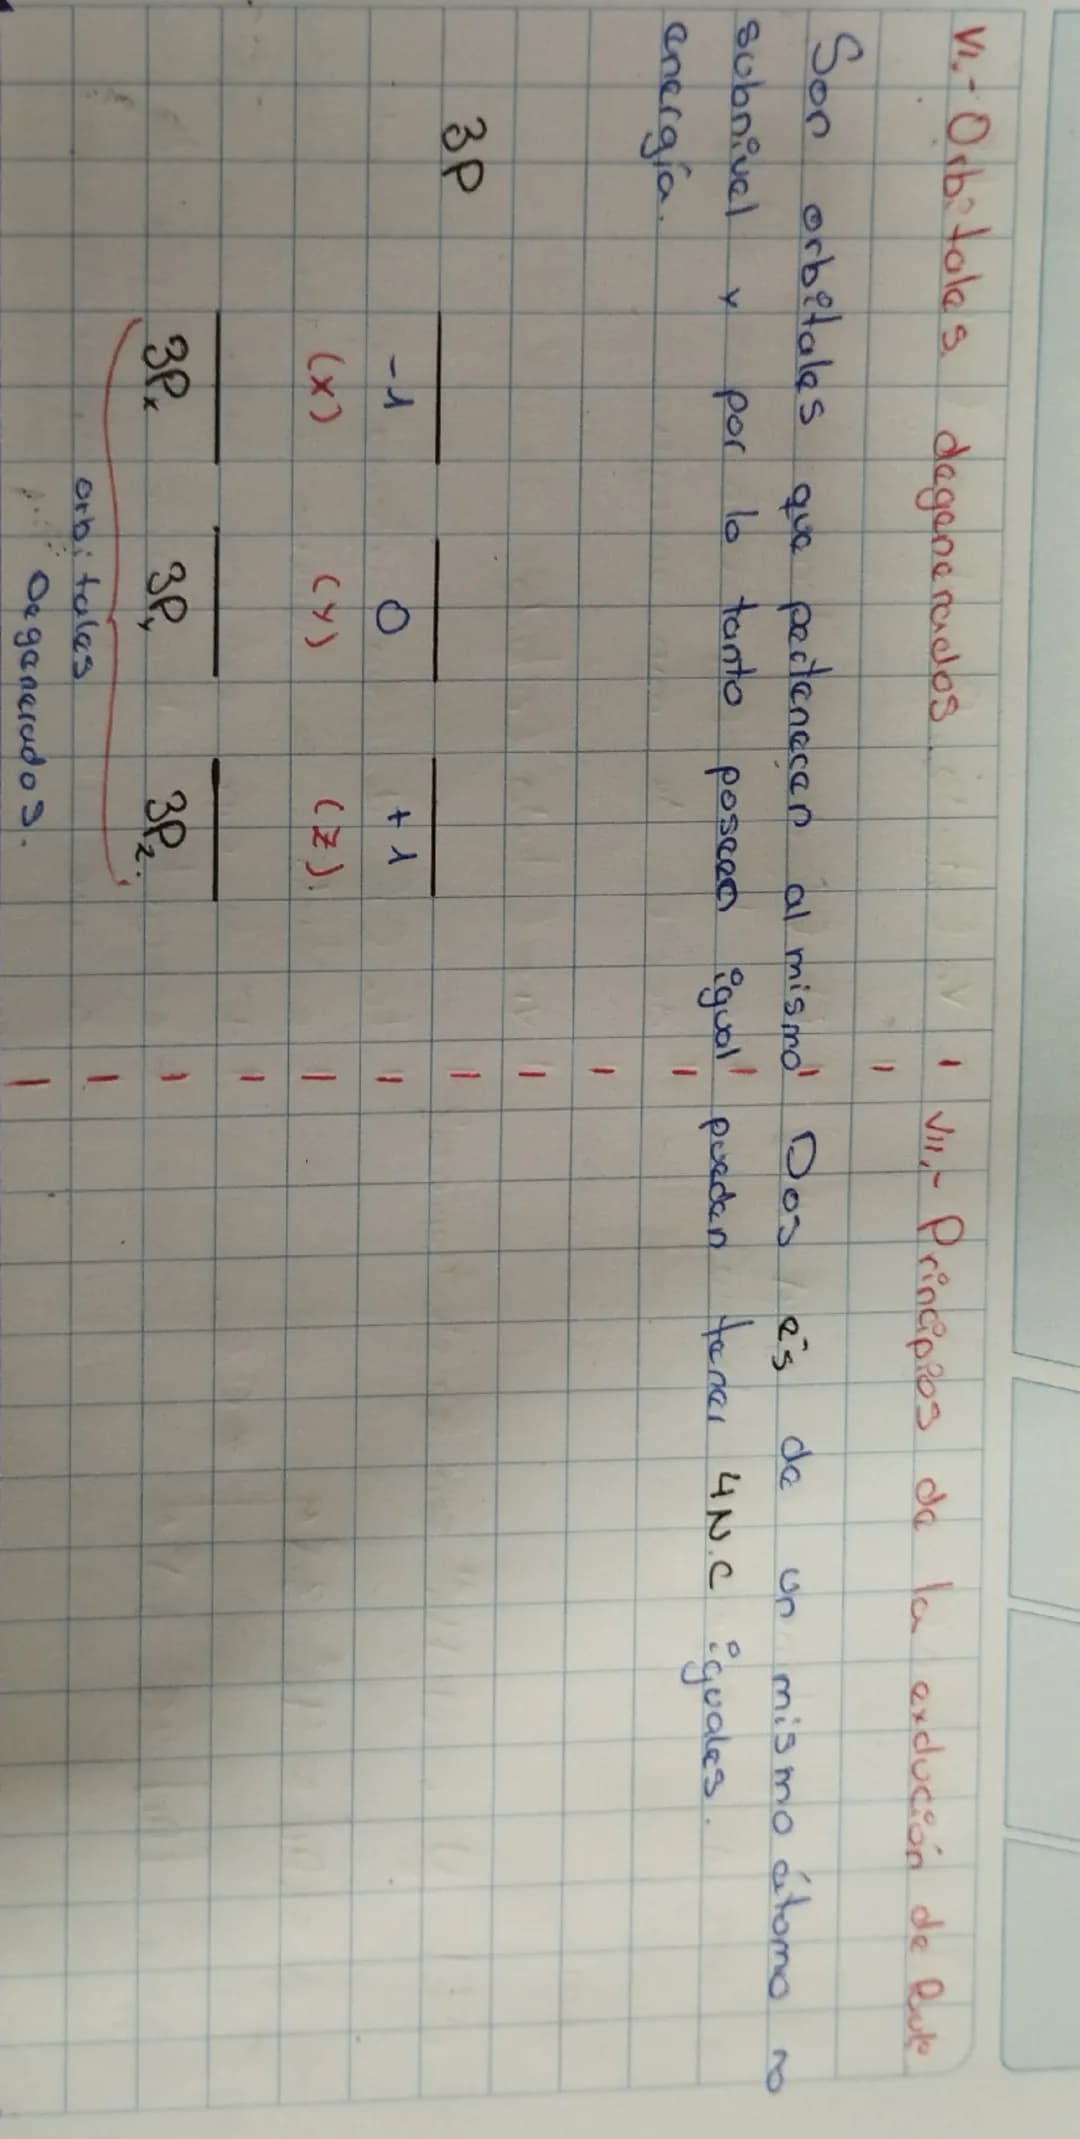 VI.- Orbitales degenerados.
Son orbitales que pertenecen al mismo
subnivel y por lo tanto poseen igual
energía.
3P
-1 0 +1
(x) (y) (z).
3Px 3Py 3Pz.
orbitales
Degenerados.
VII.- Principios de la exclución de
Dos es de un mismo átomo no
puedan tener 4N.C iguales.